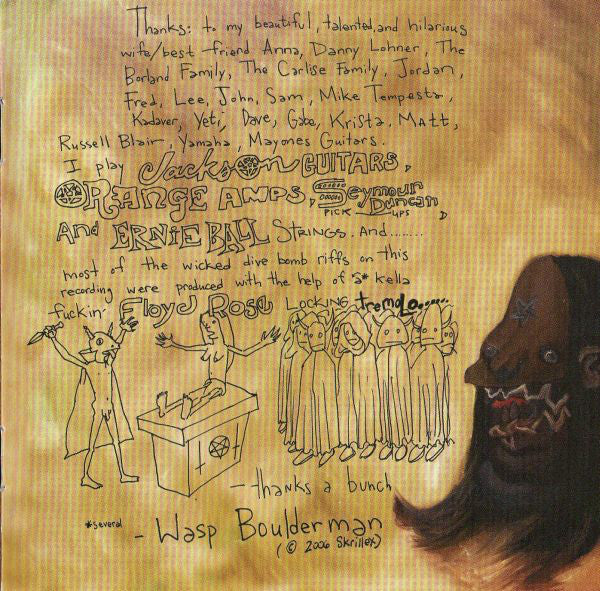 Thanks: to my beautiful, talented, and hilarious
wife/best friend Anna, Danny Lohner, The
Borland Family, The Carlise Family, Jordan,
Fred, Lee, John, Sam, Mike Tempesta,
Kadaver, Yeti, Dave, Gabe, Krista, Matt,
Russell Blair, Yamaha, Mayones Guitars.
I play Jackson GUITARS,
ORANGE AMPS, Seymour
Duncan
PICK UPS
And ERNIE BALL Strings. And.......
most of the wicked dive bomb riffs on this
recording were produced with the help of 3* kella
fuckin' Floyd Rose Locking tremolo......
- thanks a bunch
*several
- Wasp Boulderman
(© 2006 Skrillex)